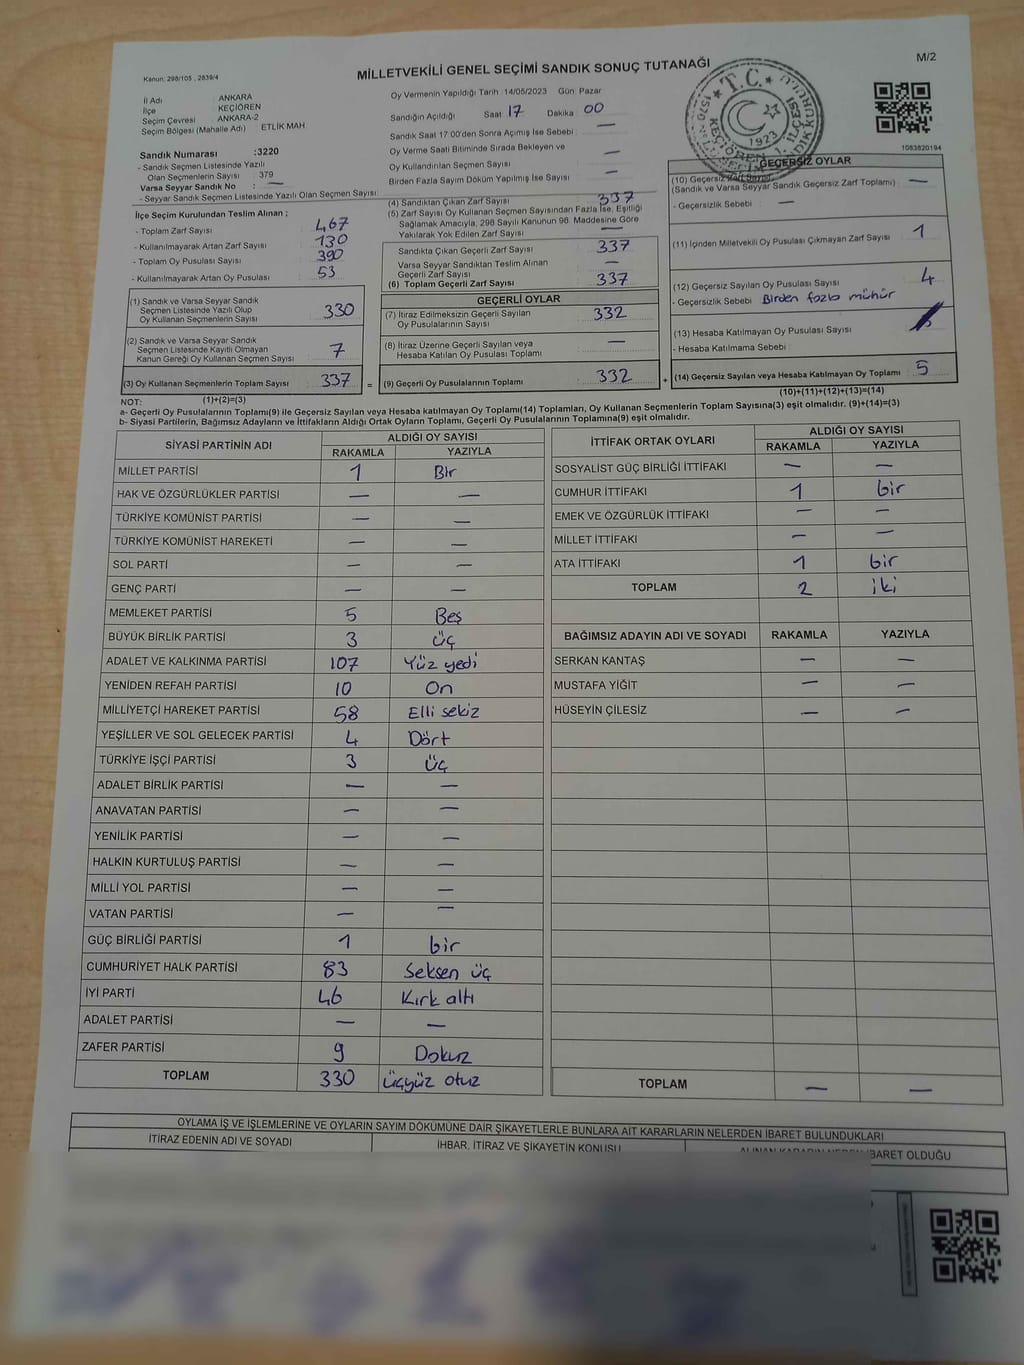 M/2
Kanun: 298/105 , 2839/4
MİLLETVEKİLİ GENEL SEÇİMİ SANDIK SONUÇ TUTANAĞI
İl Adı : ANKARA
İlçe : KEÇİÖREN
Seçim Çevresi : ANKARA-2
Seçim Bölgesi (Mahalle Adı) ETLİK MAH
Sandık Numarası :3220
- Sandık Seçmen Listesinde Yazılı
Olan Seçmenlerin Sayısı : 379
Varsa Seyyar Sandık No : —
- Seyyar Sandık Seçmen Listesinde Yazılı Olan Seçmen Sayısı:
Oy Vermenin Yapıldığı Tarih :14/05/2023 Gün: Pazar
Sandığın Açıldığı Saat 17 Dakika 00
Sandık Saat 17:00'den Sonra Açımış İse Sebebi : —
Oy Verme Saati Bitiminde Sırada Bekleyen ve
Oy Kullandırılan Seçmen Sayısı —
Birden Fazla Sayım Döküm Yapılmış İse Sayısı —
T.C.
1923
KEÇİÖREN
1083820194
İlçe Seçim Kurulundan Teslim Alınan ;
- Toplam Zarf Sayısı 467
- Kullanılmayarak Artan Zarf Sayısı 130
- Toplam Oy Pusulası Sayısı 390
- Kullanılmayarak Artan Oy Pusulası 53
(1) Sandık ve Varsa Seyyar Sandık
Seçmen Listesinde Yazılı Olup
Oy Kullanan Seçmenlerin Sayısı 330
(2) Sandık ve Varsa Seyyar Sandık
Seçmen Listesinde Kayıtlı Olmayan
Kanun Gereği Oy Kullanan Seçmen Sayısı 7
(3) Oy Kullanan Seçmenlerin Toplam Sayısı 337 =
(4) Sandıktan Çıkan Zarf Sayısı 337
(5) Zarf Sayısı Oy Kullanan Seçmen Sayısından Fazla İse, Eşitliği
Sağlamak Amacıyla, 298 Sayılı Kanunun 98. Maddesine Göre
Yakılarak Yok Edilen Zarf Sayısı —
Sandıkta Çıkan Geçerli Zarf Sayısı 337
Varsa Seyyar Sandıktan Teslim Alınan
Geçerli Zarf Sayısı —
(6) Toplam Geçerli Zarf Sayısı 337
GEÇERLİ OYLAR
(7) İtiraz Edilmeksizin Geçerli Sayılan
Oy Pusulalarının Sayısı 332
(8) İtiraz Üzerine Geçerli Sayılan veya
Hesaba Katılan Oy Pusulası Toplamı —
(9) Geçerli Oy Pusulalarının Toplamı 332 +
GEÇERSİZ OYLAR
(10) Geçersiz Zarf Sayısı
(Sandık ve Varsa Seyyar Sandık Geçersiz Zarf Toplamı) —
- Geçersizlik Sebebi : —
(11) İçinden Milletvekili Oy Pusulası Çıkmayan Zarf Sayısı 1
(12) Geçersiz Sayılan Oy Pusulası Sayısı 4
- Geçersizlik Sebebi : Birden fazla mühür
(13) Hesaba Katılmayan Oy Pusulası Sayısı
- Hesaba Katılmama Sebebi :
(14) Geçersiz Sayılan veya Hesaba Katılmayan Oy Toplamı 5
NOT: (1)+(2)=(3) (10)+(11)+(12)+(13)=(14)
a- Geçerli Oy Pusulalarının Toplamı(9) ile Geçersiz Sayılan veya Hesaba katılmayan Oy Toplamı(14) Toplamları, Oy Kullanan Seçmenlerin Toplam Sayısına(3) eşit olmalıdır. (9)+(14)=(3)
b- Siyasi Partilerin, Bağımsız Adayların ve İttifakların Aldığı Ortak Oyların Toplamı, Geçerli Oy Pusulalarının Toplamına(9) eşit olmalıdır.
SİYASİ PARTİNİN ADI ALDIĞI OY SAYISI
RAKAMLA YAZIYLA
MİLLET PARTİSİ 1 Bir
HAK VE ÖZGÜRLÜKLER PARTİSİ — —
TÜRKİYE KOMÜNİST PARTİSİ — —
TÜRKİYE KOMÜNİST HAREKETİ — —
SOL PARTİ — —
GENÇ PARTİ — —
MEMLEKET PARTİSİ 5 Beş
BÜYÜK BİRLİK PARTİSİ 3 üç
ADALET VE KALKINMA PARTİSİ 107 Yüz yedi
YENİDEN REFAH PARTİSİ 10 On
MİLLİYETÇİ HAREKET PARTİSİ 58 Elli sekiz
YEŞİLLER VE SOL GELECEK PARTİSİ 4 Dört
TÜRKİYE İŞÇİ PARTİSİ 3 üç
ADALET BİRLİK PARTİSİ — —
ANAVATAN PARTİSİ — —
YENİLİK PARTİSİ — —
HALKIN KURTULUŞ PARTİSİ — —
MİLLİ YOL PARTİSİ — —
VATAN PARTİSİ — —
GÜÇ BİRLİĞİ PARTİSİ 1 bir
CUMHURİYET HALK PARTİSİ 83 Seksen üç
İYİ PARTİ 46 Kırk altı
ADALET PARTİSİ — —
ZAFER PARTİSİ 9 Dokuz
TOPLAM 330 üçyüz otuz
İTTİFAK ORTAK OYLARI ALDIĞI OY SAYISI
RAKAMLA YAZIYLA
SOSYALİST GÜÇ BİRLİĞİ İTTİFAKI — —
CUMHUR İTTİFAKI 1 bir
EMEK VE ÖZGÜRLÜK İTTİFAKI — —
MİLLET İTTİFAKI — —
ATA İTTİFAKI 1 bir
TOPLAM 2 iki
BAĞIMSIZ ADAYIN ADI VE SOYADI RAKAMLA YAZIYLA
SERKAN KANTAŞ — —
MUSTAFA YİĞİT — —
HÜSEYİN ÇİLESİZ — —
TOPLAM — —
OYLAMA İŞ VE İŞLEMLERİNE VE OYLARIN SAYIM DÖKÜMÜNE DAİR ŞİKAYETLERLE BUNLARA AİT KARARLARIN NELERDEN İBARET BULUNDUKLARI
İTİRAZ EDENİN ADI VE SOYADI İHBAR, İTİRAZ VE ŞİKAYETİN KONUSU ALINAN KARARIN NEDEN İBARET OLDUĞU